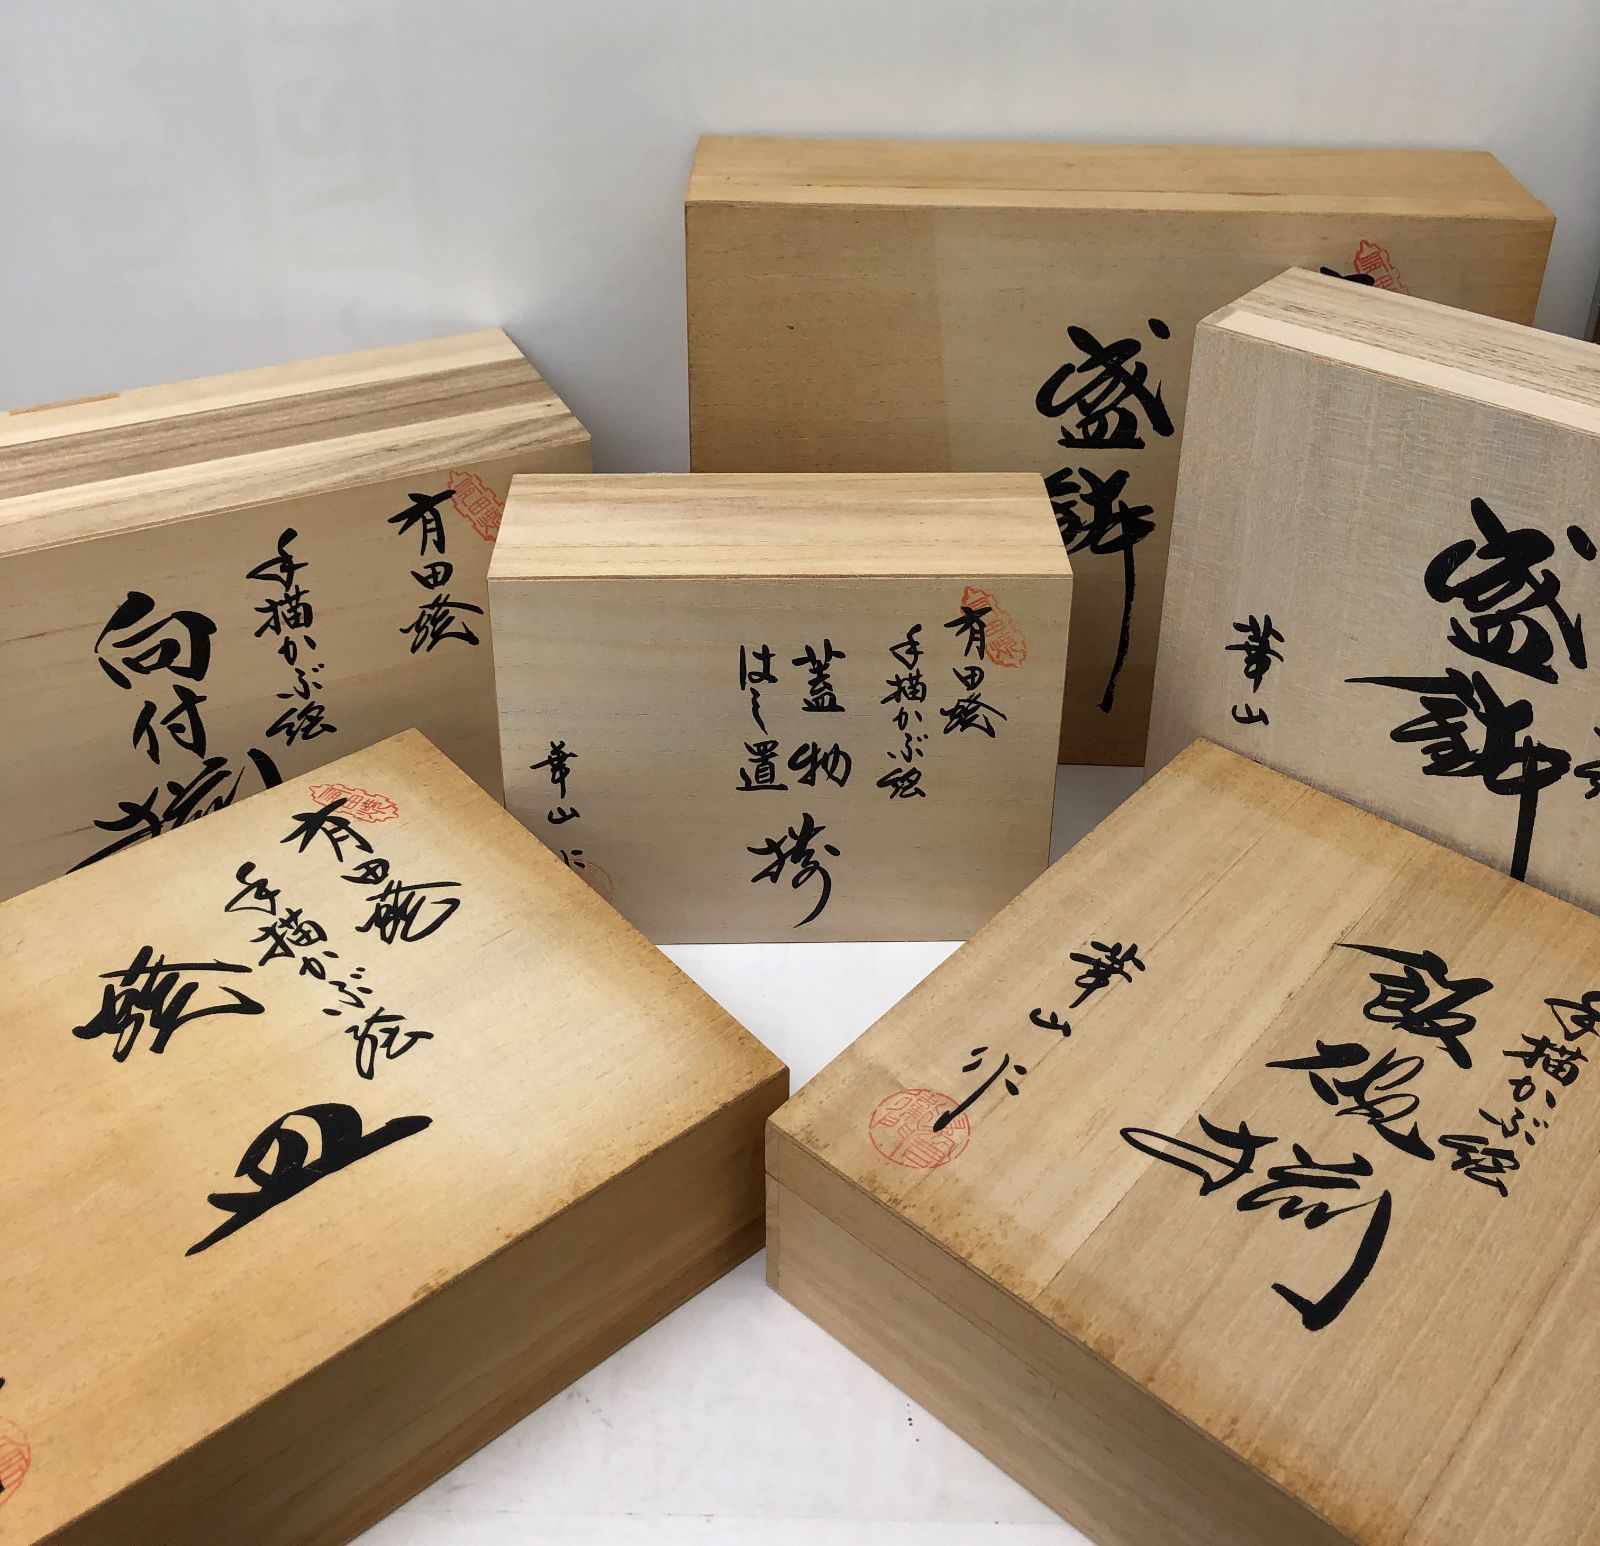 有田焼
手描かぶ絵
向付揃
有田焼
手描かぶ絵
蓋物
はし置
揃
華山作
盛鉢
盛鉢
華山
有田焼
手描かぶ絵
焼皿
手描かぶ絵
飯碗揃
華山作